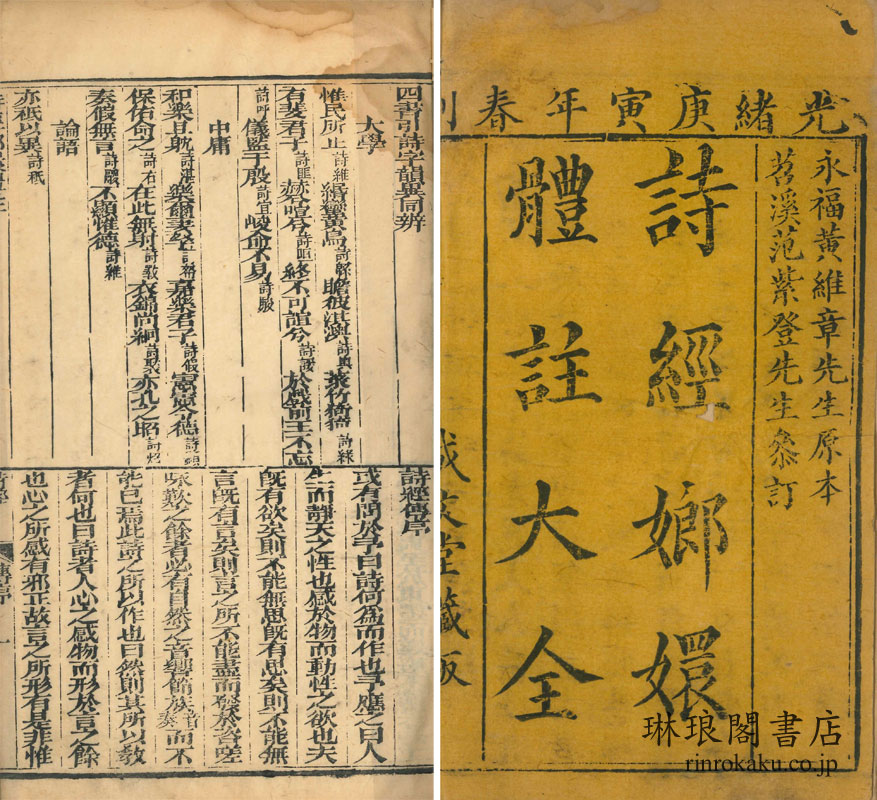 光緒庚寅年春刊
永福黃維章先生原本
苕溪范紫登先生叅訂
詩經嫏嬛
體註大全
成文堂藏版
琳琅閣書店
rinrokaku.co.jp
四書引詩字韻異同辨
大學
惟民所止詩維 緡蠻黃鳥詩緜 瞻彼淇澳詩奧 菉竹猗猗詩綠
有斐君子詩匪 赫兮喧兮詩咺 終不可諠兮詩諼 於戲前王不忘
詩呼 儀監于殷詩宜 峻命不易詩駿
中庸
和樂且耽詩湛 樂爾妻孥詩帑 嘉樂君子詩假 憲憲令德詩顯
保佑命之詩右 在此無射詩斁 衣錦尚絅詩褧 亦孔之昭詩炤
奏假無言詩鬷 不顯惟德詩維
論語
亦秪以異詩祇
詩經傳序
或有問於予曰詩何爲而作也予應之曰人
生而靜天之性也感於物而動性之欲也夫
旣有欲矣則不能無思旣有思矣則不能無
言旣有言矣則言之所不能盡而發於咨嗟
咏歎之餘者必有自然之音響節族音奏而不
能已焉此詩之所以作也曰然則其所以敎
者何也曰詩者人心之感物而形於言之餘
也心之所感有邪正故言之所形有是非惟
傳序 一